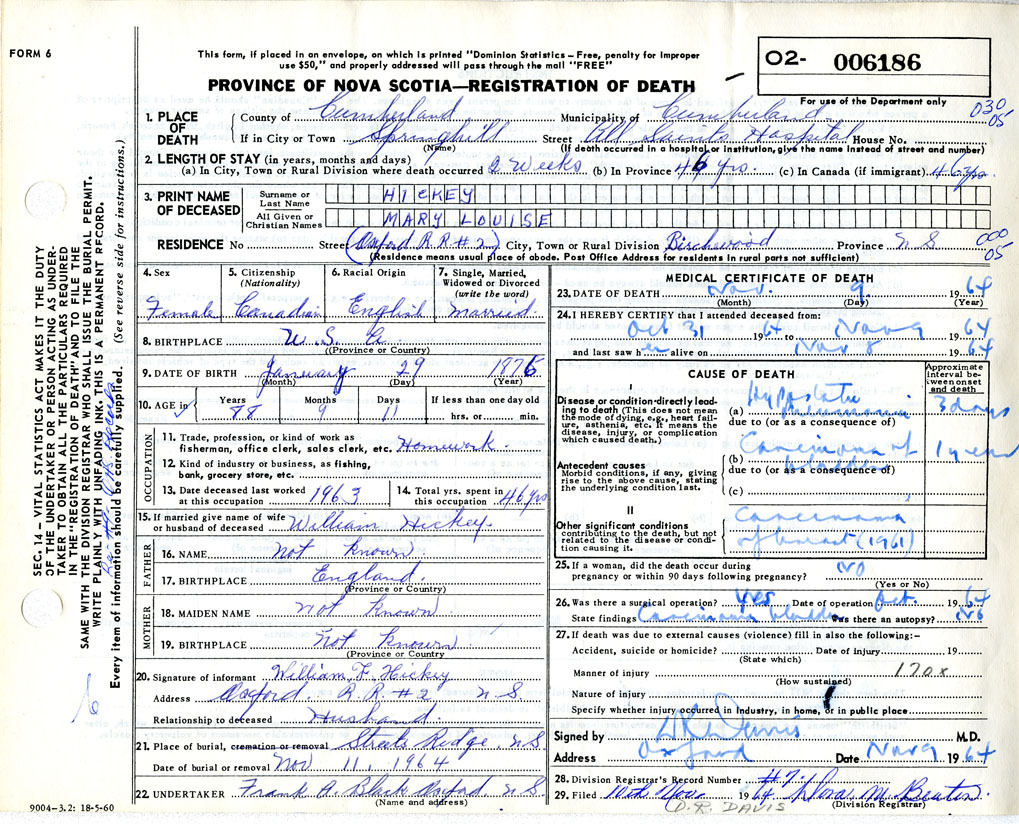 FORM 6
This form, if placed in an envelope, on which is printed "Dominion Statistics – Free, penalty for improper
use $50," and properly addressed will pass through the mail "FREE"
PROVINCE OF NOVA SCOTIA—REGISTRATION OF DEATH
O2- 006186
For use of the Department only
030
05
1. PLACE OF DEATH
County of Cumberland Municipality of Cumberland
If in City or Town Springhill Street All Saints Hospital House No.
(Name) (If death occurred in a hospital or institution, give the name instead of street and number)
2. LENGTH OF STAY (in years, months and days)
(a) In City, Town or Rural Division where death occurred 2 Weeks (b) In Province 46 yrs. (c) In Canada (if immigrant) 46 yrs.
3. PRINT NAME OF DECEASED
Surname or Last Name HICKEY
All Given or Christian Names MARY LOUISE
RESIDENCE No Street (Oxford R.R #2) City, Town or Rural Division Birchwood Province N S
000
05
(Residence means usual place of abode. Post Office Address for residents in rural parts not sufficient)
4. Sex
Female
5. Citizenship
(Nationality)
Canadian
6. Racial Origin
English
7. Single, Married, Widowed or Divorced
(write the word)
Married.
8. BIRTHPLACE U. S. A
(Province or Country)
9. DATE OF BIRTH January 29 1876
(Month) (Day) (Year)
10. AGE in Years 88 Months 9 Days 11 If less than one day old
hrs. or min.
OCCUPATION
11. Trade, profession, or kind of work as
fisherman, office clerk, sales clerk, etc. Homework.
12. Kind of industry or business, as fishing,
bank, grocery store, etc.
13. Date deceased last worked at this occupation 1963
14. Total yrs. spent in this occupation 46 yrs
15. If married give name of wife
or husband of deceased William Hickey.
FATHER
16. NAME Not Known
17. BIRTHPLACE England.
(Province or Country)
MOTHER
18. MAIDEN NAME Not Known
19. BIRTHPLACE Not Known
(Province or Country
20. Signature of informant William F. Hickey
Address Oxford. R. R #2 N S
Relationship to deceased Husband.
21. Place of burial, cremation or removal Streets Ridge, N S
Date of burial or removal Nov 11, 1964
22. UNDERTAKER Frank A. Black Oxford N S
(Name and address)
9004–3.2: 18-5-60
MEDICAL CERTIFICATE OF DEATH
23. DATE OF DEATH Nov. 9 1964
(Month) (Day) (Year)
24. I HEREBY CERTIFY that I attended deceased from:
Oct 31 1964 to Nov 9 1964
and last saw her alive on Nov 8 1964
CAUSE OF DEATH
Approximate interval between onset and death
I
Disease or condition directly leading to death (This does not mean the mode of dying, e.g., heart failure, asthenia, etc. It means the disease, injury, or complication which caused death.)
(a) Hypostatic Pneumonia 3 days
due to (or as a consequence of)
Antecedent causes
Morbid conditions, if any, giving rise to the above cause, stating the underlying condition last.
(b) Carcinoma of bladder 1 year
due to (or as a consequence of)
(c)
II
Other significant conditions
contributing to the death, but not related to the disease or condition causing it.
Carcinoma
of breast (1961)
25. If a woman, did the death occur during
pregnancy or within 90 days following pregnancy? NO
(Yes or No)
26. Was there a surgical operation? Yes Date of operation Oct. 1964
State findings Carcinoma bladder Was there an autopsy? No
27. If death was due to external causes (violence) fill in also the following:–
Accident, suicide or homicide? Date of injury 19
(State which)
Manner of injury 170X
(How sustained)
Nature of injury
Specify whether injury occurred in Industry, in home, or in public place
Signed by D R Davis M.D.
Address Oxford Date Nov 9 1964
28. Division Registrar's Record Number #7.
29. Filed 10th Nov. 1964 M. Beaton
D. R. DAVIS (Division Registrar)
SEC. 14 – VITAL STATISTICS ACT MAKES IT THE DUTY
OF THE UNDERTAKER OR PERSON ACTING AS UNDER-
TAKER TO OBTAIN ALL THE PARTICULARS REQUIRED
IN THE "REGISTRATION OF DEATH" AND TO FILE THE
SAME WITH THE DIVISION REGISTRAR WHO SHALL ISSUE THE BURIAL PERMIT.
WRITE PLAINLY WITH UNFADING INK. THIS IS A PERMANENT RECORD.
Every item of information should be carefully supplied. (See reverse side for instructions.)
6